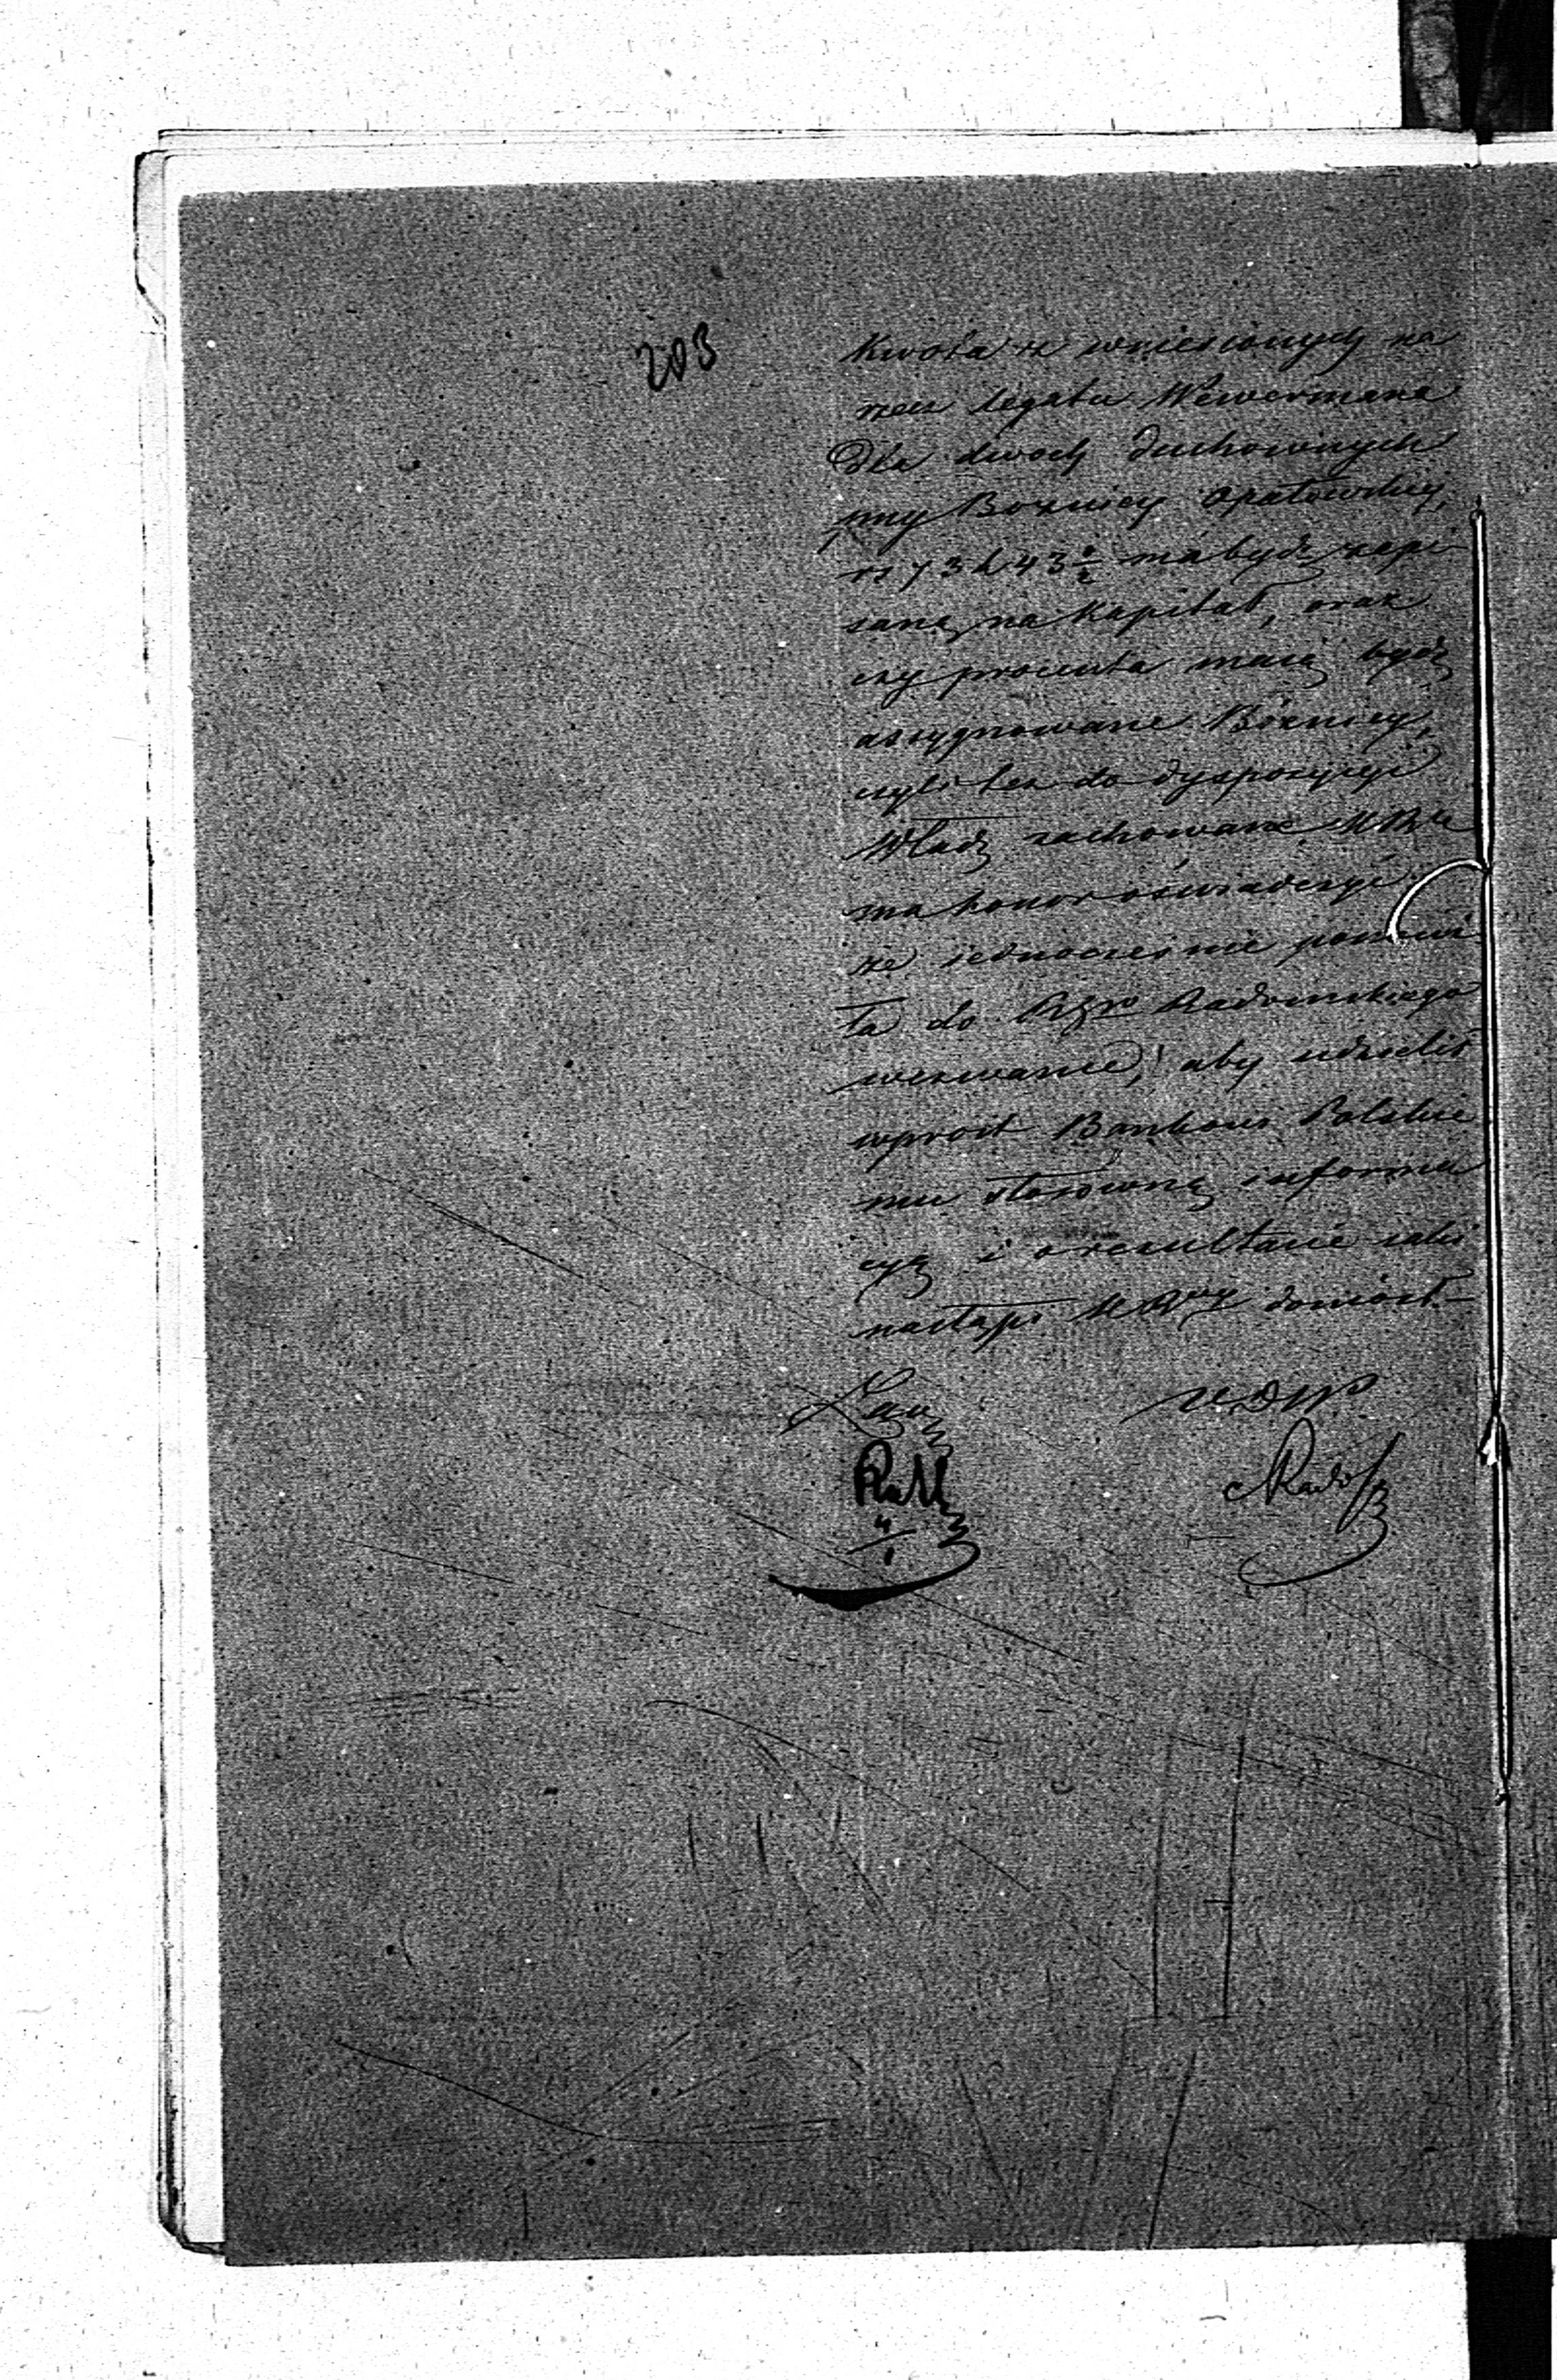 203
Kwota z wniesionych na
rzecz legatu Wewermana
Dla dwoch duchownych
przy Boznicy Opatowskiey,
rs 73 k 43 ½ ma bydz zapi-
saną na kapitał, oraz
czy procenta maią bydz
assygnowane Bóznicy,
czyli tez do dyspozycyi
Władz zachowane
ma honor oświadczyć
że iednocześnie
ła do Radomskiego
wezwanie, aby udzielił
wprost Bankowi Polskie
mu stosowną informa
cyą i o rezultacie iaki
nastąpi doniosł